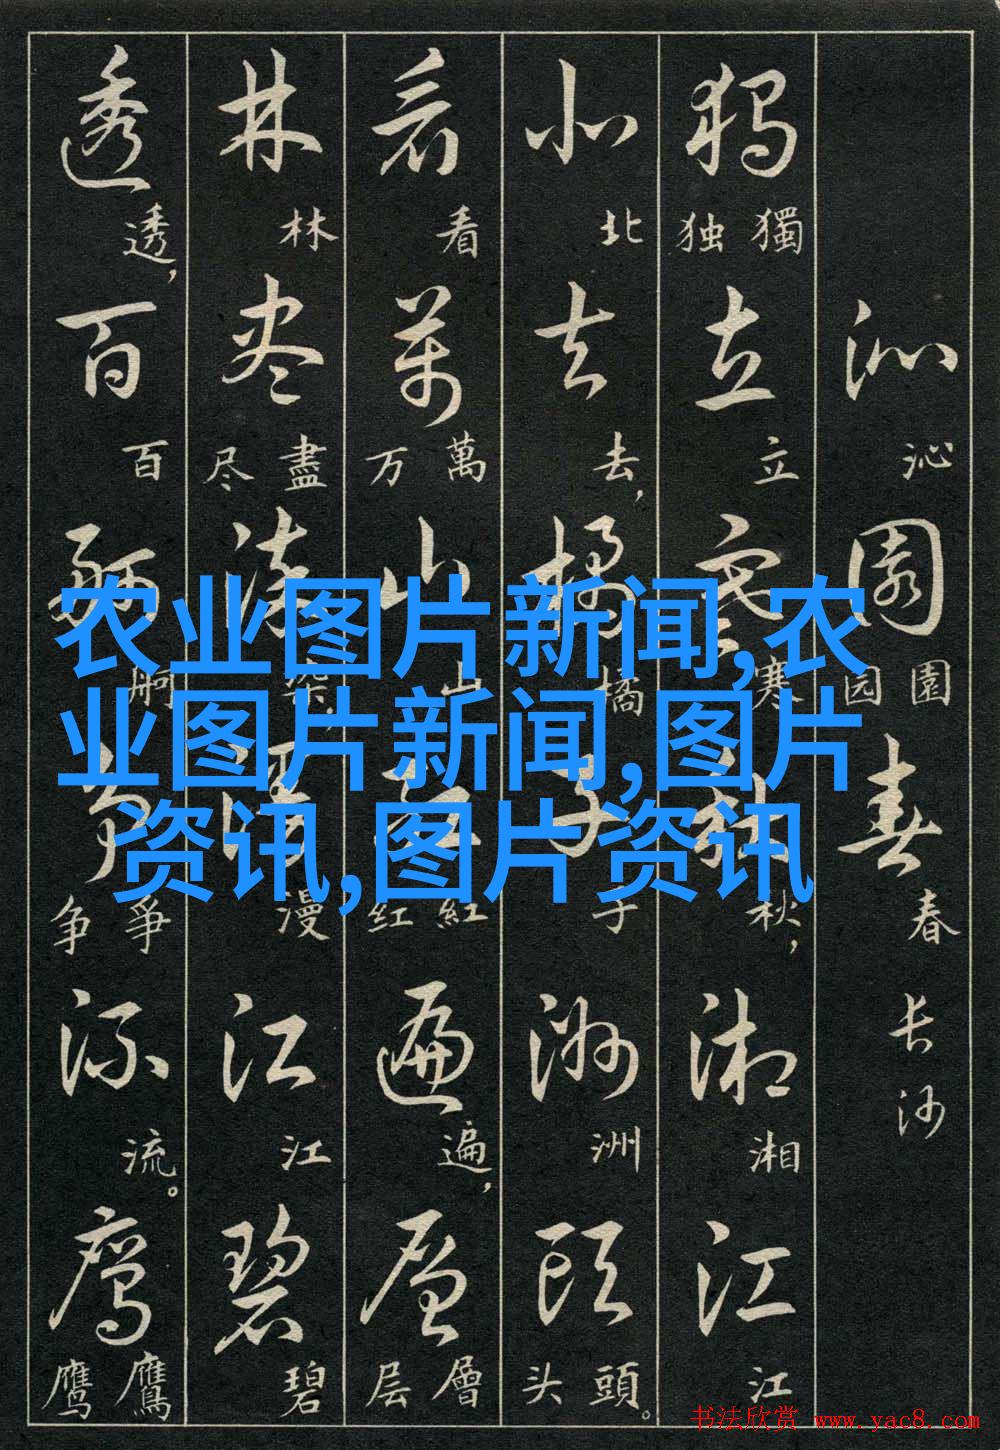 沁園春
沁園园春长沙
獨立寒秋湘江
獨独立寒秋，湘江
北去橘子洲頭
北去，橘子洲頭头。
看萬山紅遍層
看萬万山紅红遍，層层
林尽染漫江碧
林盡尽染，漫江碧
透百舸争流鹰
透，百舸爭争流。鷹鹰
农业图片新闻,农
业图片新闻,图片
资讯,图片资讯
书法欣赏 www.yac8.com